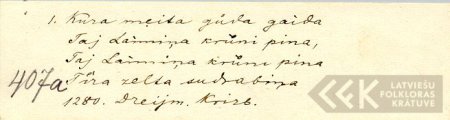 1. Kūra meita gūda gaida
Taj Laimiņa krūni pina,
Taj Laimiņa krūni pina
407a
Tīra zelta sudrabiņa
1280. Dreijm. Krizb.
LATVIEŠU
FOLKLORAS
KRĀTUVE